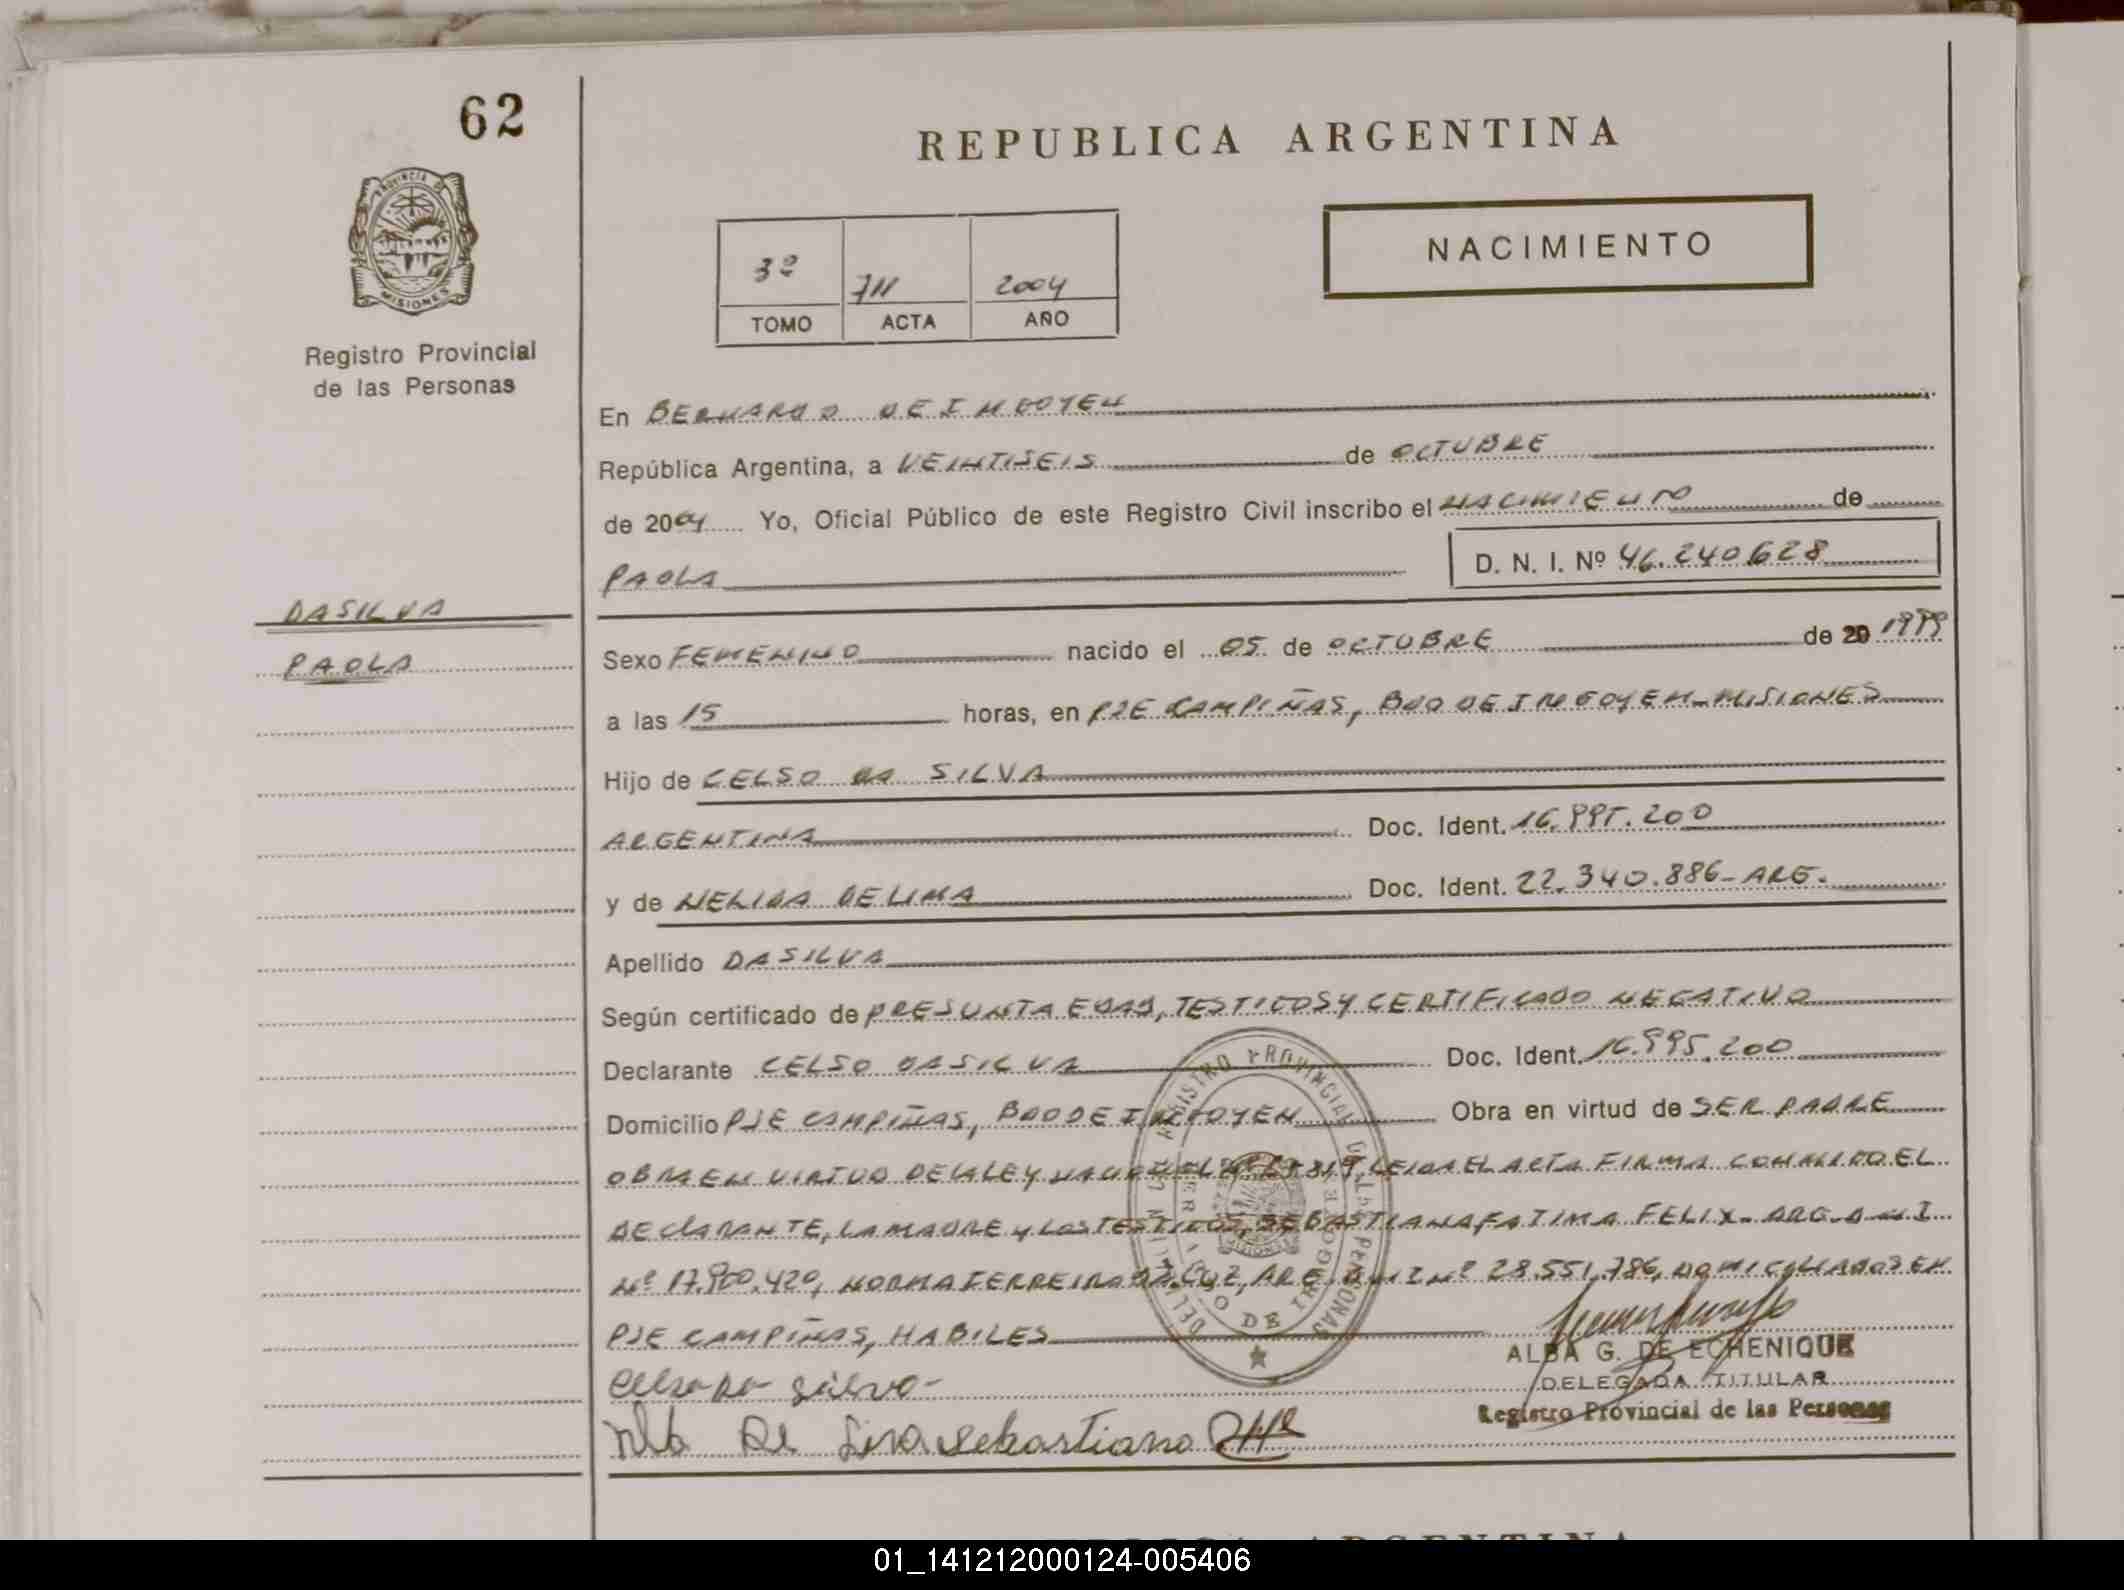 62
REPUBLICA ARGENTINA
PROVINCIA DE
MISIONES
Registro Provincial
de las Personas
3º 711 2004
TOMO ACTA AÑO
NACIMIENTO
En BERNARDO DE IRIGOYEN
República Argentina, a VEINTISEIS de OCTUBRE
de 2004 Yo, Oficial Público de este Registro Civil inscribo el NACIMIENTO de
PAOLA D. N. I. Nº 46.240628
DASILVA
PAOLA
Sexo FEMENINO nacido el 05 de OCTUBRE de 20 1999
a las 15 horas, en PJE CAMPIÑAS, BDO DE IRIGOYEN-MISIONES
Hijo de CELSO DA SILVA
ARGENTINA Doc. Ident. 16.995.200
y de NELIDA DELIMA Doc. Ident. 22.340.886-ARG.
Apellido DASILVA
Según certificado de PRESUNTA EDAD, TESTIGOS Y CERTIFICADO NEGATIVO
Declarante CELSO DASILVA Doc. Ident. 16.995.200
Domicilio PJE CAMPIÑAS, BDO DE IRIGOYEN Obra en virtud de SER PADRE
OBRA EN VIRTUD DE LA LEY NACIONAL Nº 25819, LEIDA EL ACTA FIRMA CONMIGO EL
DECLARANTE, LA MADRE y LOS TESTIGOS, SEBASTIANA FATIMA FELIX-ARG-D N I
Nº 17.900.420, NORMA FERREIRA DA LUZ, ARG. D N I Nº 28.551.786, DOMICILIADOS EN
PJE CAMPIÑAS, HABILES
REGISTRO PROVINCIAL DE LAS PERSONAS
DE IRIGO
Celso Da Silva
De Lima Sebastiana
ALBA G. DE ECHENIQUE
DELEGADA TITULAR
Registro Provincial de las Personas
01_141212000124-005406